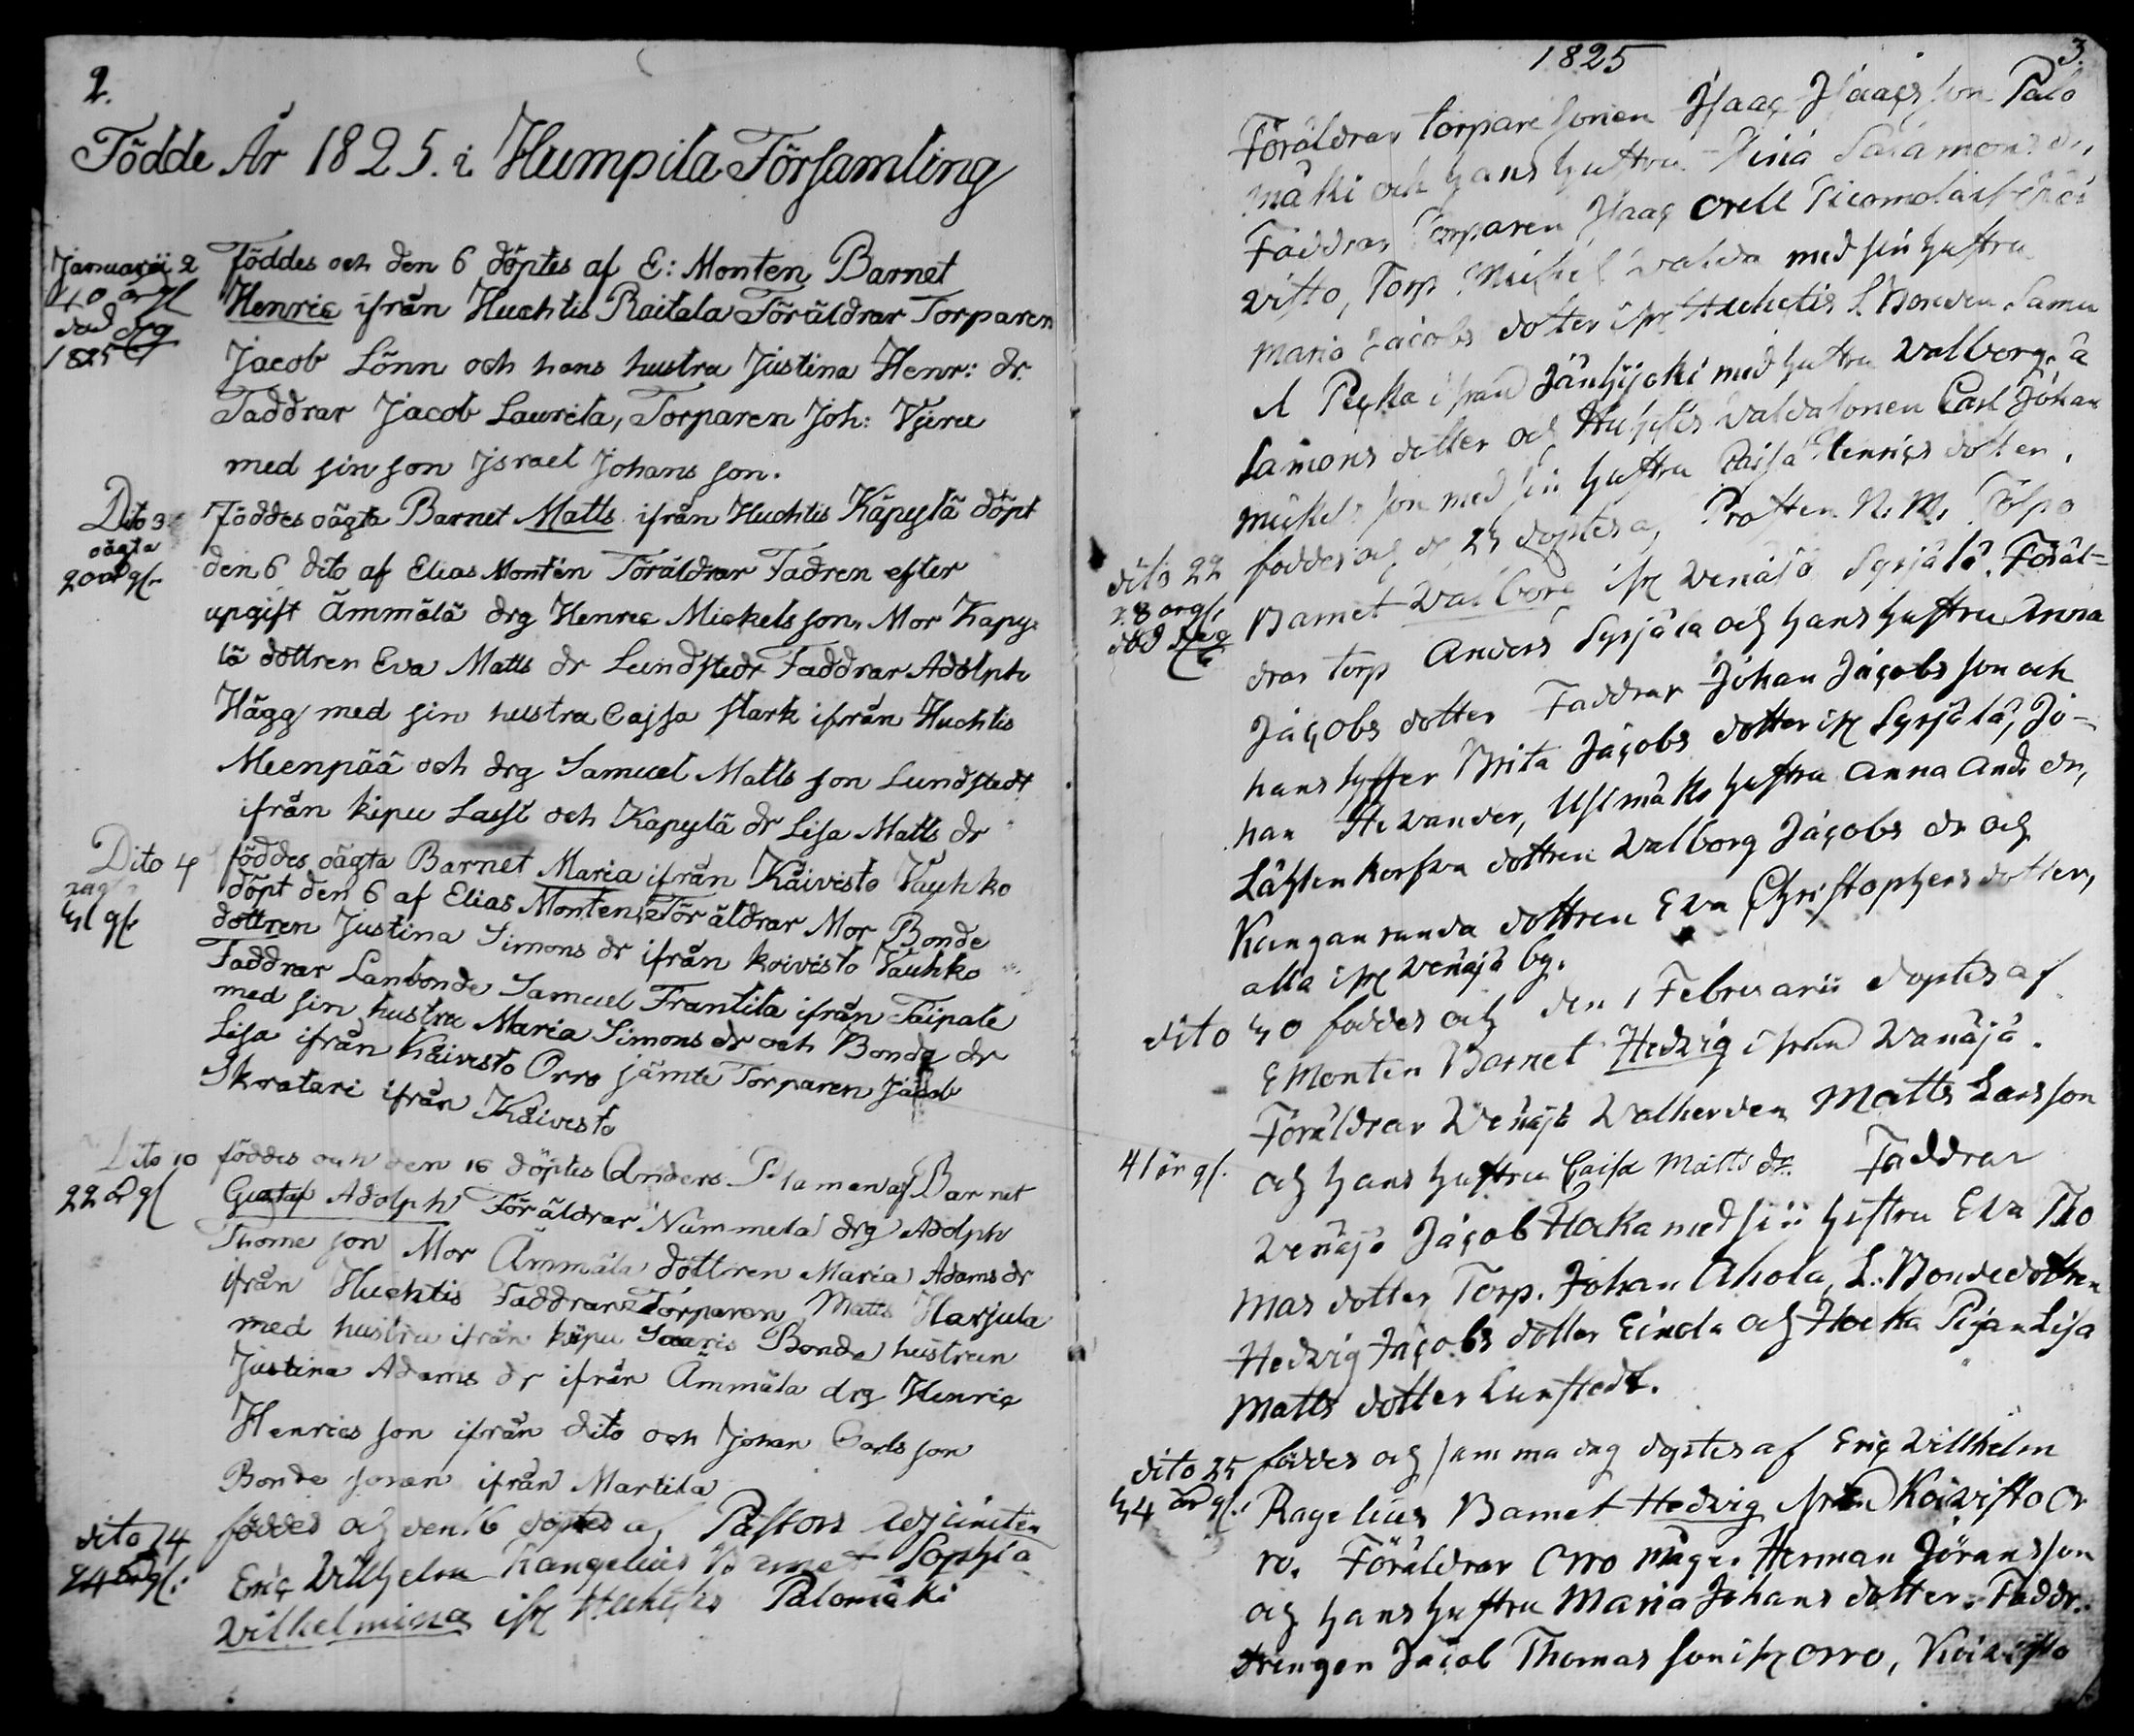 2.
Födde År 1825. i Humpila Församling
Januarii 2 Föddes och den 6 döptes af E: Monten Barnet
40 år gl Henric ifrån Huchtis Raitala Föräldrar Torparen
död
1825 Jacob Lönn och hans hustru Justina Henr: dr.
Faddrar Jacob Laurila, Torparen Joh: Vjeru
med sin son Israel Johans son.
Dito 3 Föddes oägta Barnet Matts ifrån Huchtis Käpylä döpt
oägta
20 år gl. den 6 dito af Elias Montén Föräldrar Fadren efter
upgift Ämmälä drg Henric Mickels son, Mor Kapy-
lä dottren Eva Matts dr Lundstedt Faddrar Adolph
Hägg med sin hustru Cajsa Stark ifrån Huchtis
Meenpää och drg Samuel Matts son Lundstedt
ifrån kipu Lassi och Kapylä dr Lisa Matts dr
Dito 4 föddes oägta Barnet Maria ifrån Kåivisto Vauhko
gl. döpt den 6 af Elias Monten, Föräldrar Mor Bonde
dottren Justina Simons dr ifrån koivisto Vauhko
Faddrar Lanbonde Samuel Frantila ifrån Taipale
med sin hustru Maria Simons dr och Bonde dr
Lisa ifrån Kåivisto Orro jämte Torparen Jacob
Skratari ifrån Kåivisto
Dito 10 föddes och den 16 döptes Anders af Barnet
22 år gl Gustaf Adolph Föräldrar Nummela drg Adolph
Thome son Mor Ämmälä dottren Maria Adams dr
ifrån Huchtis Faddrar Torparen Matts Harjula
med hustru ifrån kipu Saaris Bonde hustrun
Justina Adams dr ifrån Ämmäla drg Henric
Henrics son ifrån dito och Johan Carls son
Bonde sonen ifrån Martila
dito 14 föddes och den 16 döptes af Pastors Adjuncten
24 år gl. Eric Willhelm Rangelius Barnet Sophia
Wilhelmina ifr Huhtis Palomäki
1825 3.
Föräldrar torpare sonen Isaac Isaacs son Palo
mäki och hans hustru Stina Salamons dr,
Faddrar Torparen Isaac Orell
visto, Torp. Mickel Valda med sin hustru
Maria Jacobs dotter ifr Huhtis L. Bonden Samu
el Pecka ifrån Jänhijoki med hustru Walborg Sa
lamons dotter och Huhtis Valda sonen Carl Johan
Mickels son med sin hustru Caisa Henrics dotter.
dito 22 föddes och d 25 döptes af Prosten N. M. Tolpo
28 år gl. Barnet Walborg ifr Wenäjä Syrjälä. Föräl-
död
drar torp Anders Syrjäla och hans hustru Anna
Jacobs dotter Faddrar Johan Jacobs son och
hans syster Brita Jacobs dotter ifr Syrjälä, Jo-
han Hevander, Usimäki hustru Anna And. dr,
Lähtenkorfva dottren Walborg Jacobs dr och
Kanganranda dottren Eva Christophers dotter,
alla ifr Wenäjä by.
dito 30 föddes och den 1 Februarii döptes af
E Monten Barnet Hedvig ifrån Wänäjä.
Föräldrar Wenäjä Walherden Matts Larsson
41 år gl. och hans hustru Caisa Matts dr. Faddrar
Wenäjä Jacob Hocka med sin hustru Eva Tho
mas dotter Torp. Johan Ahola, L: Bondedottren
Hedvig Jacobs dotter Einola och Hocka Pigan Lisa
Matts dotter Lunstedt.
dito 25 föddes och samma dag döptes af Eric Willhelm
34 år gl. Ragelius Barnet Hedvig ifrån Koivisto Or
ro. Föräldrar Orro mågen Herman Jöransson
och hans hustru Maria Johans dotter. Faddr.
drengen Jacob Thomas son ifr Orro, Koivisto